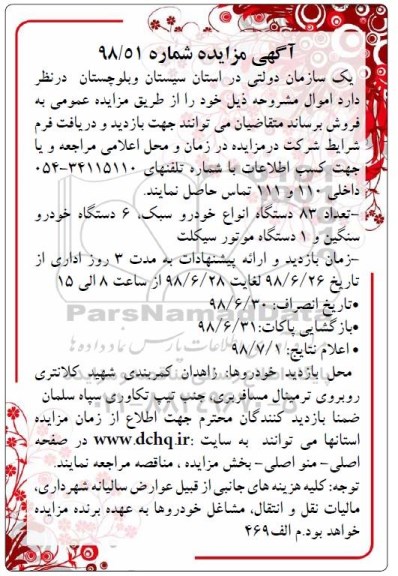 آگهی مزایده شماره ۹۸/۵۱
یک سازمان دولتی در استان سیستان وبلوچستان درنظر
دارد اموال مشروحه ذیل خود را از طریق مزایده عمومی به
فروش برساند متقاضیان می توانند جهت بازدید و دریافت فرم
شرایط شرکت درمزایده در زمان و محل اعلامی مراجعه و یا
جهت کسب اطلاعات با شماره تلفنهای ۳۴۱۱۵۱۱۰-۰۵۴
داخلی ۱۱۰ و ۱۱۱ تماس حاصل نمایند.
-تعداد ۸۳ دستگاه انواع خودرو سبک، ۶ دستگاه خودرو
سنگین و ۱ دستگاه موتور سیکلت
-زمان بازدید و ارائه پیشنهادات به مدت ۳ روز اداری از
تاریخ ۹۸/۶/۲۶ لغایت ۹۸/۶/۲۸ از ساعت ۸ الی ۱۵
•تاریخ انصراف: ۹۸/۶/۳۰
•بازگشایی پاکات: ۹۸/۶/۳۱
• اعلام نتایج: ۹۸/۷/۱
محل بازدید خودروها: زاهدان کمربندی شهید کلانتری
روبروی ترمینال مسافربری جنب تیپ تکاوری سپاه سلمان
ضمنا بازدید کنندگان محترم جهت اطلاع از زمان مزایده
استانها می توانند به سایت :www.dchq.ir در صفحه
اصلی- منو اصلی- بخش مزایده ، مناقصه مراجعه نمایند.
توجه: کلیه هزینه های جانبی از قبیل عوارض سالیانه شهرداری،
مالیات نقل و انتقال، مشاغل خودروها به عهده برنده مزایده
خواهد بود.م الف۴۶۹
ParsNamadData